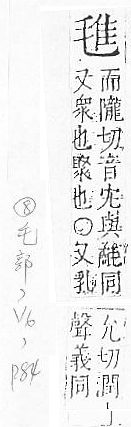 毴
而隴切音宂與㲨同
又衆也聚也〇又乳
允切潤上
聲義同
⑧毛部、V6、P84